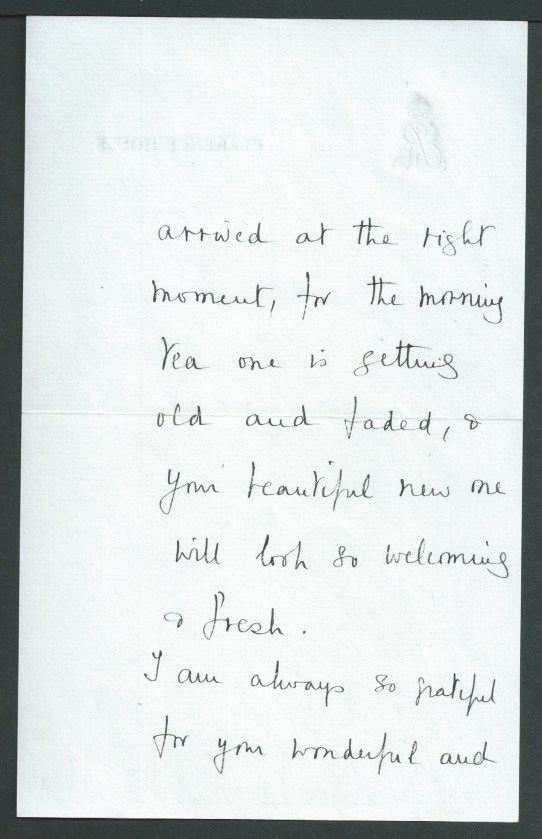 CLARENCE HOUSE
arrived at the right
moment, for the morning
tea one is getting
old and faded, &
your beautiful new one
will look so welcoming
& fresh.
I am always so grateful
for your wonderful and